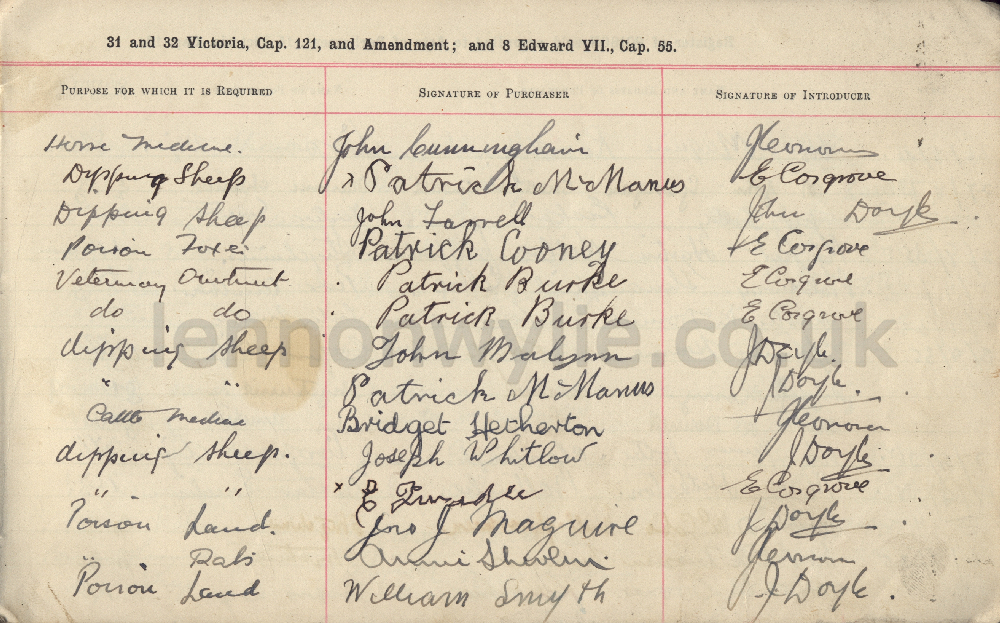 31 and 32 Victoria, Cap. 121, and Amendment; and 8 Edward VII., Cap. 55.
Purpose for which it is Required Signature of Purchaser Signature of Introducer
Horse Medicine. John Cunningham
Dipping Sheep x Patrick McManus E Cosgrove
Dipping Sheep John Farrell John Doyle
Poison Foxes Patrick Cooney E Cosgrove
Veterinary Ointment Patrick Burke E Cosgrove
do do Patrick Burke E Cosgrove
lennonwylie.co.uk
dipping sheep John Malynn J Doyle.
" " Patrick McManus J Doyle.
Cattle Medicine Bridget Hetherton
dipping sheep. Joseph Whitlow J Doyle
" " x E E Cosgrove
Poison Land. Jno J Maguire J Doyle
" Rats Annie
Poison Land William Smyth J Doyle.